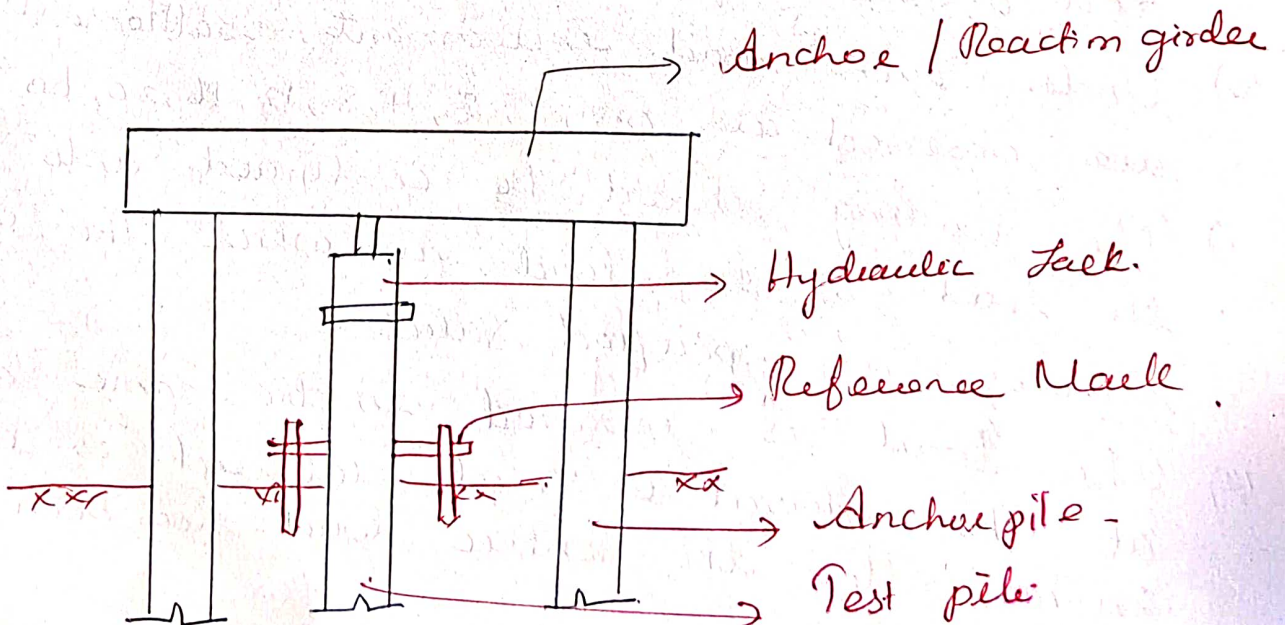 Anchor / Reaction girder
Hydraulic Jack.
Reference Mark
Anchor pile -
Test pile